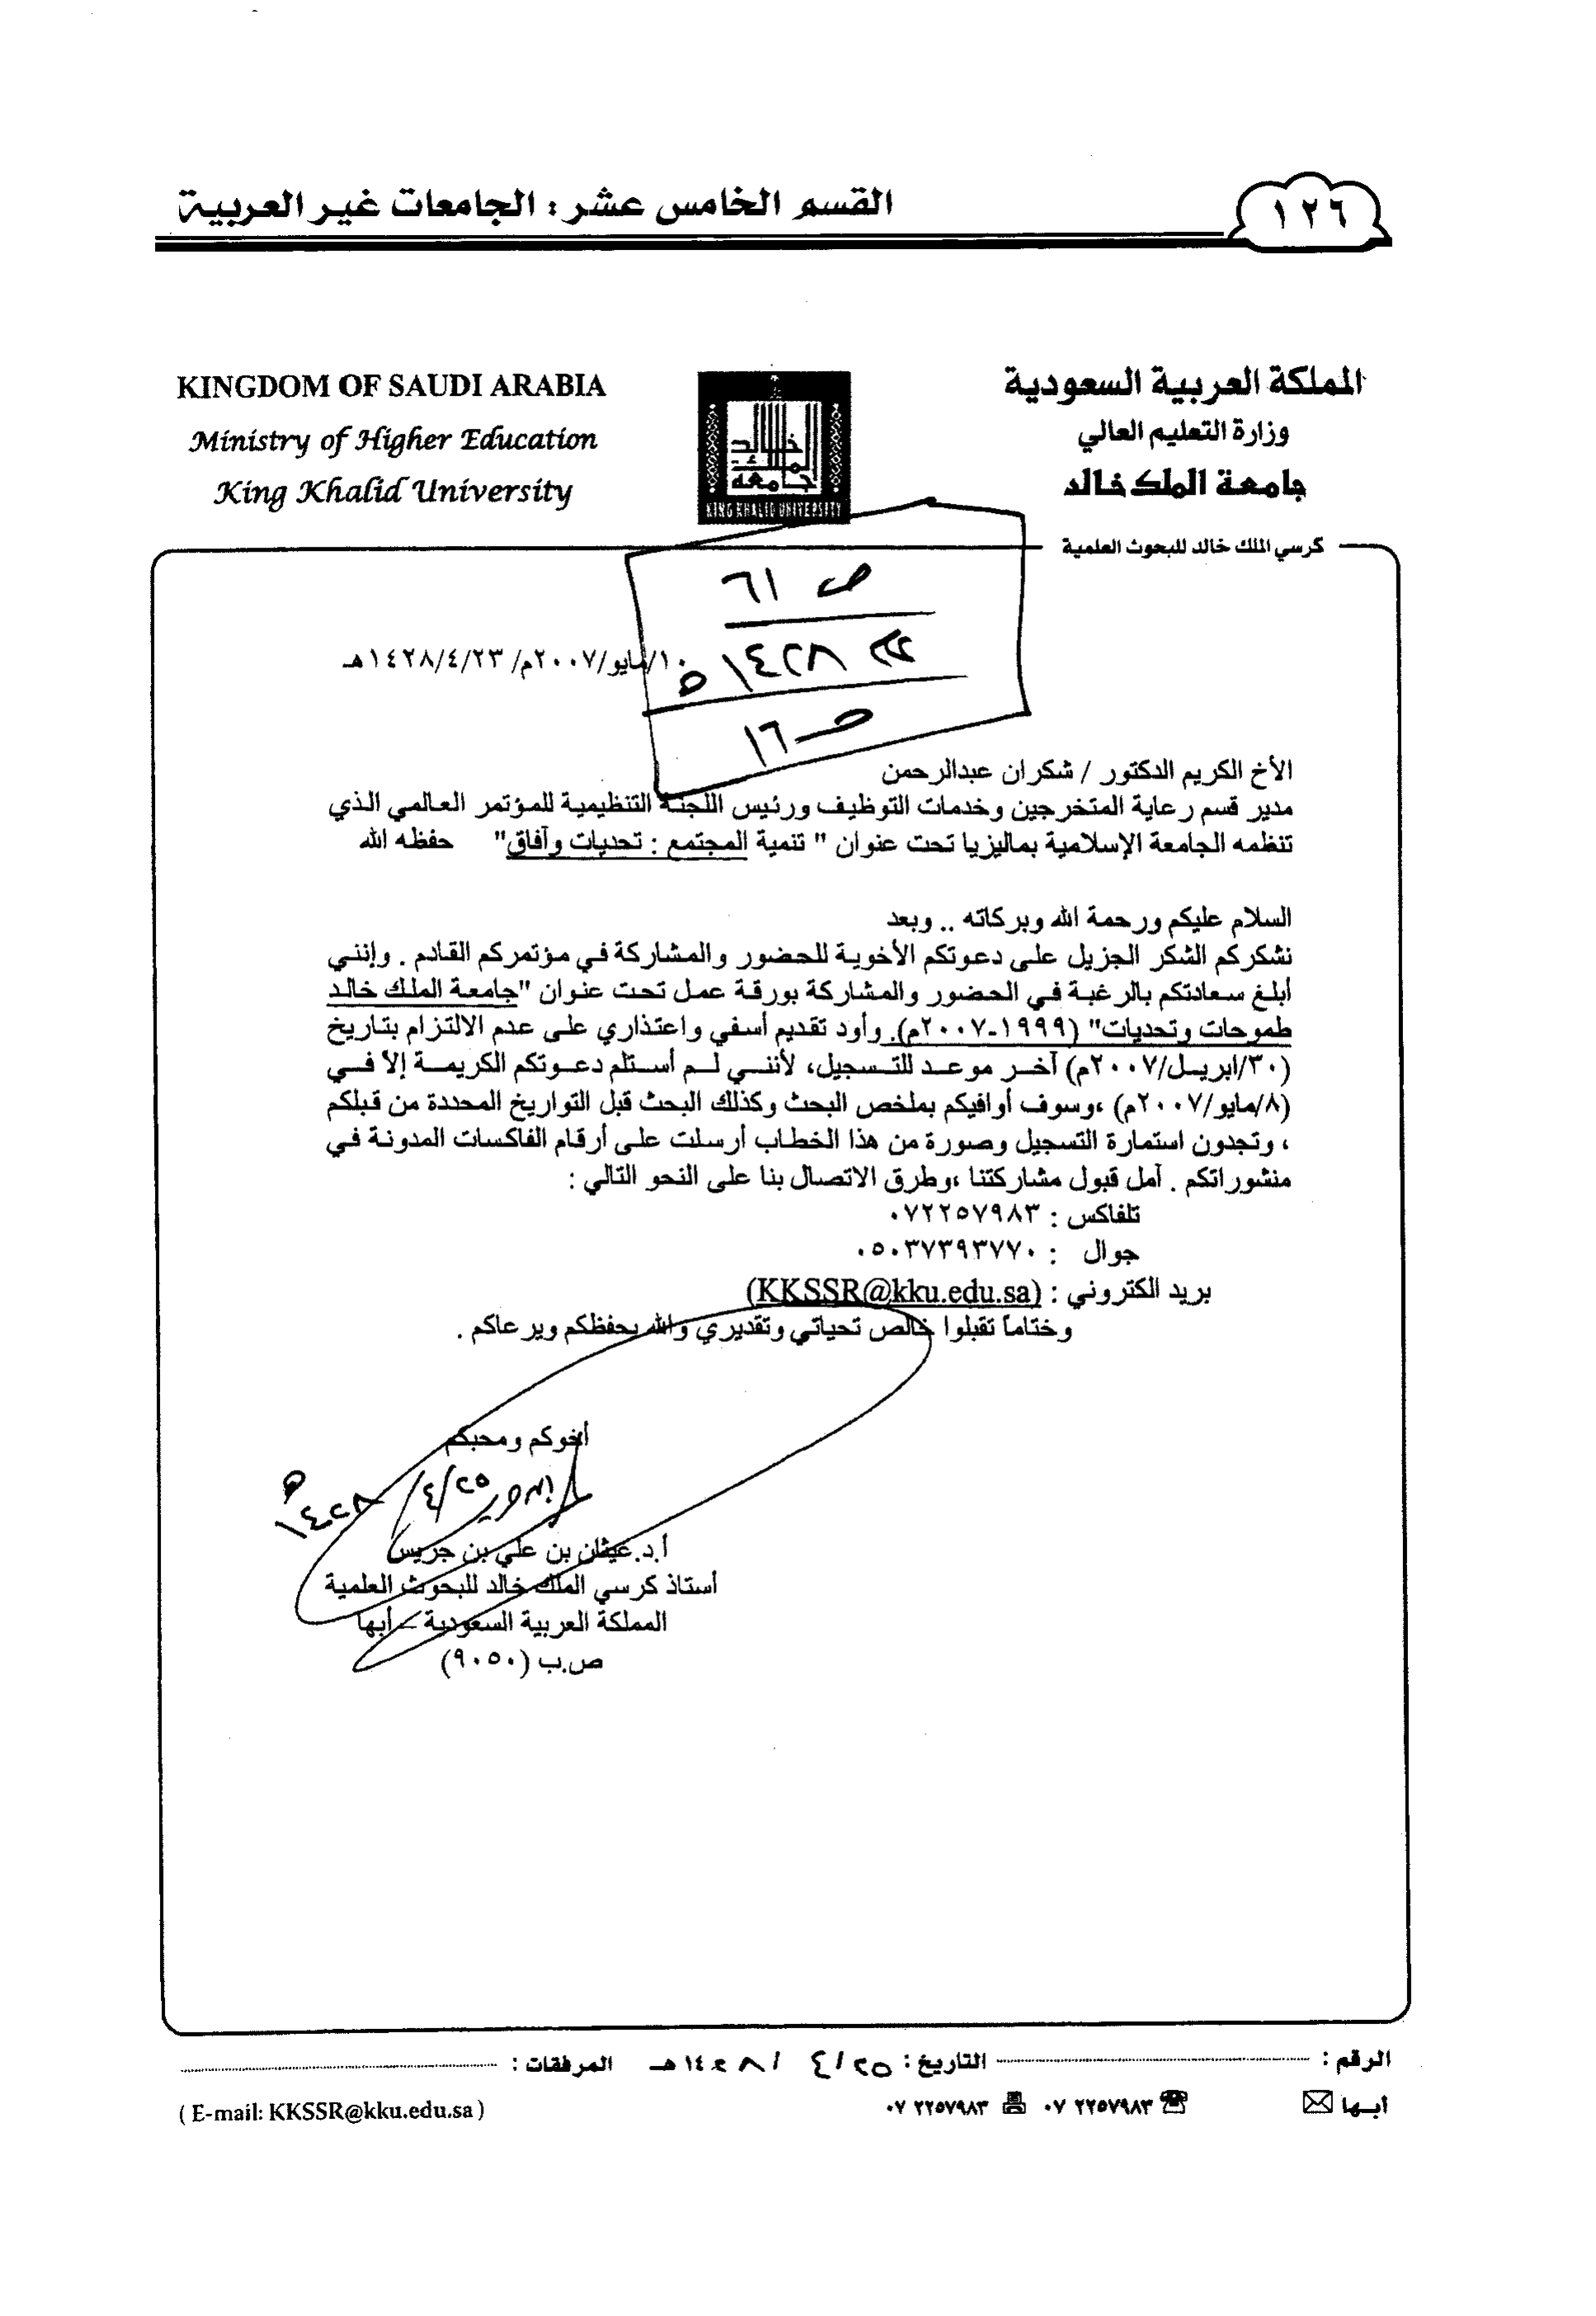 ١٢٦
القسم الخامس عشر: الجامعات غير العربية
المملكة العربية السعودية
وزارة التعليم العالي
جامعة الملك خالد
KINGDOM OF SAUDI ARABIA
Ministry of Higher Education
King Khalid University
جامعة الملك خالد
KING KHALID UNIVERSITY
كرسي الملك خالد للبحوث العلمية
ص ٦١
١٤٢٨ هـ
ص ١٦
١٠/مايو/٢٠٠٧م/ ١٤٢٨/٤/٢٣هـ
الأخ الكريم الدكتور / شكران عبدالرحمن
مدير قسم رعاية المتخرجين وخدمات التوظيف ورئيس اللجنة التنظيمية للمؤتمر العالمي الذي
تنظمه الجامعة الإسلامية بماليزيا تحت عنوان " تنمية المجتمع : تحديات وآفاق" حفظه الله
السلام عليكم ورحمة الله وبركاته .. وبعد
نشكركم الشكر الجزيل على دعوتكم الأخوية للحضور والمشاركة في مؤتمركم القادم . وإنني
أبلغ سعادتكم بالرغبة في الحضور والمشاركة بورقة عمل تحت عنوان "جامعة الملك خالد
طموحات وتحديات" (١٩٩٩-٢٠٠٧م). وأود تقديم أسفي واعتذاري على عدم الالتزام بتاريخ
(٣٠/ابريل/٢٠٠٧م) آخر موعد للتسجيل، لأنني لم أستلم دعوتكم الكريمة إلا في
(٨/مايو/٢٠٠٧م) ،وسوف أوافيكم بملخص البحث وكذلك البحث قبل التواريخ المحددة من قبلكم
، وتجدون استمارة التسجيل وصورة من هذا الخطاب أرسلت على أرقام الفاكسات المدونة في
منشوراتكم . آمل قبول مشاركتنا ،وطرق الاتصال بنا على النحو التالي :
تلفاكس : ٠٧٢٢٥٧٩٨٣
جوال : ٠٥٠٣٧٣٩٣٧٧٠
بريد الكتروني : (KKSSR@kku.edu.sa)
وختاماً تقبلوا خالص تحياتي وتقديري والله يحفظكم ويرعاكم .
أخوكم ومحبكم
٤/٢٥/
١٤٢٨هـ
أ.د.عيثان بن علي بن جريس
أستاذ كرسي الملك خالد للبحوث العلمية
المملكة العربية السعودية – أبها
ص.ب (٩٠٥٠)
الرقم : التاريخ : ٢٥/ ٤ / ١٤٢٨هـ المرفقات :
أبها ٠٧ ٢٢٥٧٩٨٣ ٠٧ ٢٢٥٧٩٨٣
( E-mail: KKSSR@kku.edu.sa )